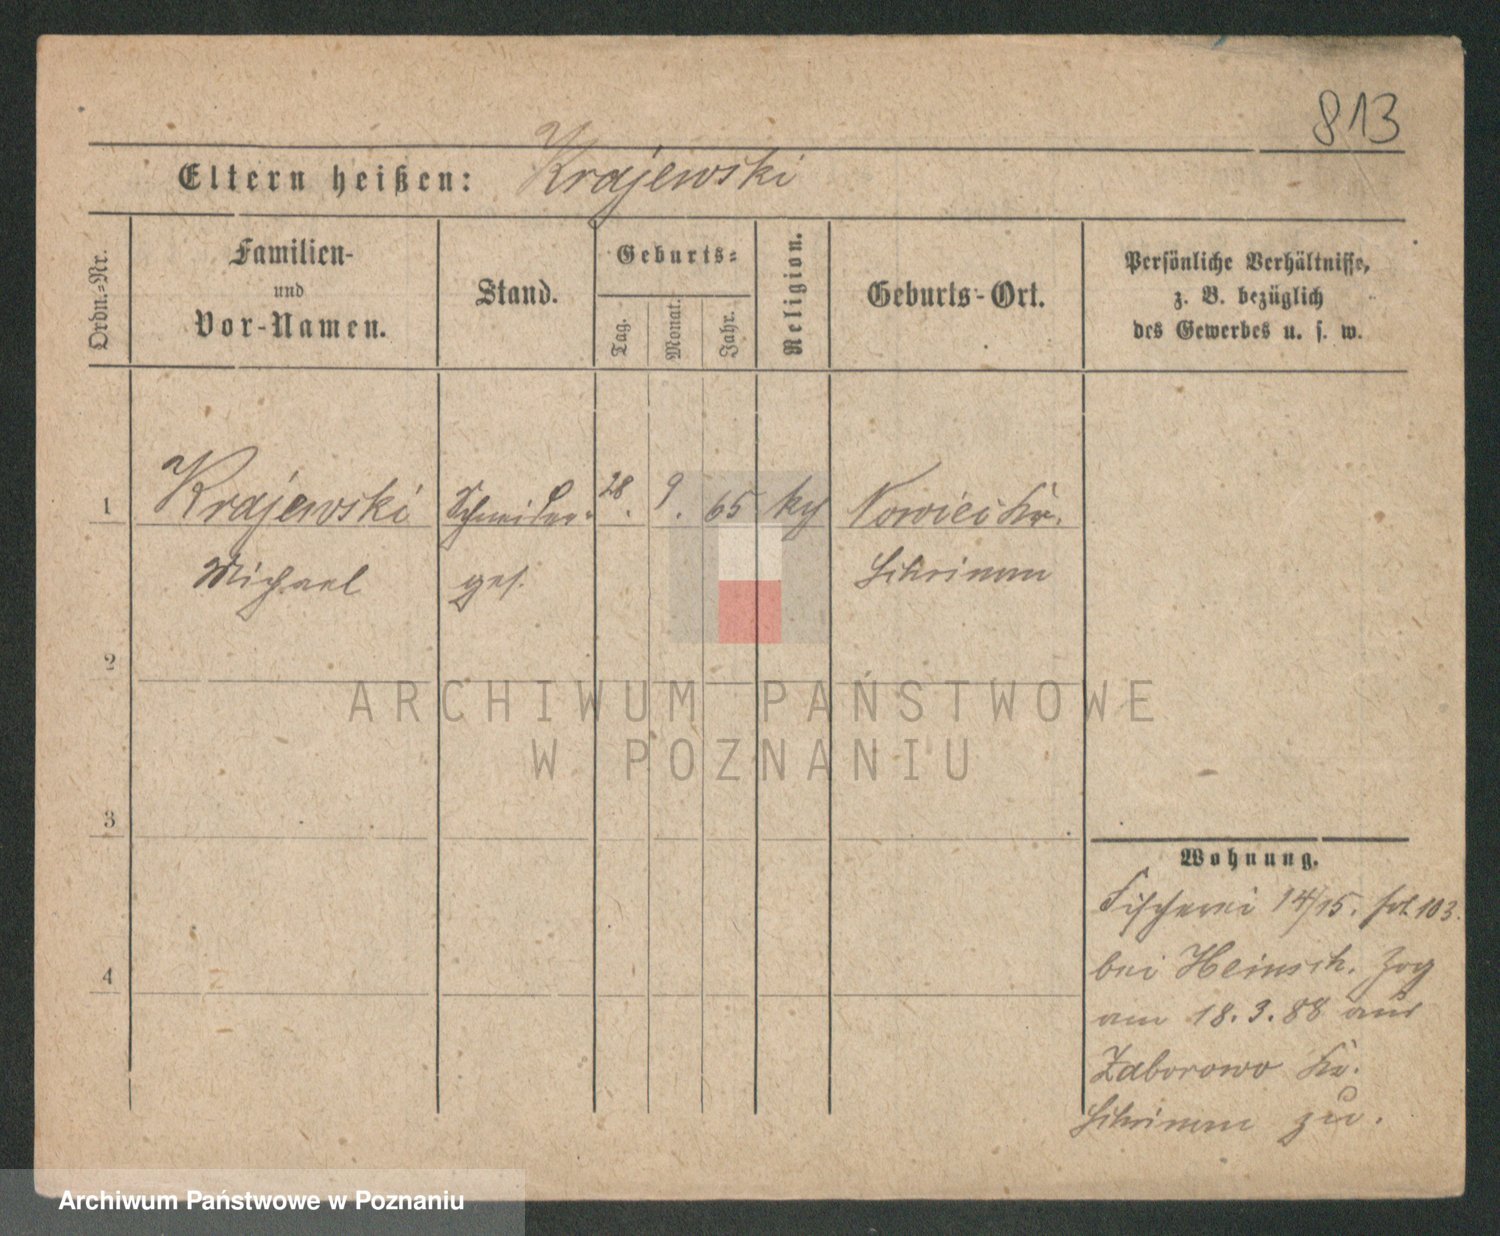 813
Eltern heißen: Krajewski
Ordn.-Nr.
Familien-
und
Vor-Namen.
Stand.
Geburts-
Tag.
Monat.
Jahr.
Religion.
Geburts-Ort.
Persönliche Verhältnisse,
z. B. bezüglich
des Gewerbes u. s. w.
1 Krajewski Schneider- 28. 9. 65 Nowiec Kr.
Michael ges. Schrimm
2
3
4
Wohnung.
Fischerei 14/15. 103.
bei Heinsch. Zog
am 18.3.88 aus
Zaborowo Kr.
Schrimm zu.
ARCHIWUM PAŃSTWOWE
W POZNANIU
Archiwum Państwowe w Poznaniu